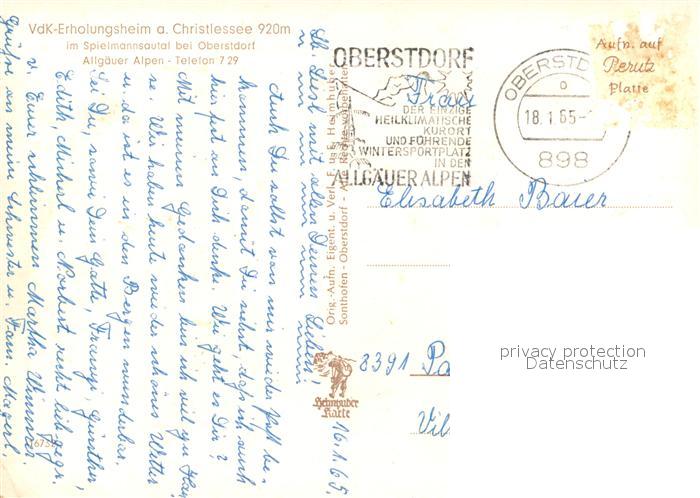 VdK-Erholungsheim a. Christlessee 920m
im Spielmannsautal bei Oberstdorf
Allgäuer Alpen - Telefon 7 29
16.1.65.
Lb. Dirl mit allen Deinen Lieben!
Auch Du sollst von mir wieder Post be-
kommen, damit Du siehst, daß ich auch
hier oft an Dich denke. Wie geht es Dir?
Mit meinen Gedanken bin ich viel zu Hau
se. Wir haben heute wieder schönes Wetter
u. da ist es in den Bergen wunderbar.
Sei Du, sowie Dein Gatte, Franzi, Günther,
Edith, Michael u. Norbert recht lieb gegr.
v. Eurer schlimmen Martha Wimmer.
Grüße an meine Schwester u. Fam. Magerl.
Orig.-Aufn. Eigent. u. Verl. F. u. E. Heimhuber
Sonthofen - Oberstdorf - Alle Rechte vorbehalten
Heimhuber
Karte
1673
OBERSTDORF
DER EINZIGE
HEILKLIMATISCHE
KURORT
UND FÜHRENDE
WINTERSPORTPLATZ
IN DEN
ALLGÄUER ALPEN
OBERSTD
18.1.65-
898
Aufn. auf
Perutz
Platte
Frau
Elisabeth Baier
8391 Pa
Vil
privacy protection
Datenschutz